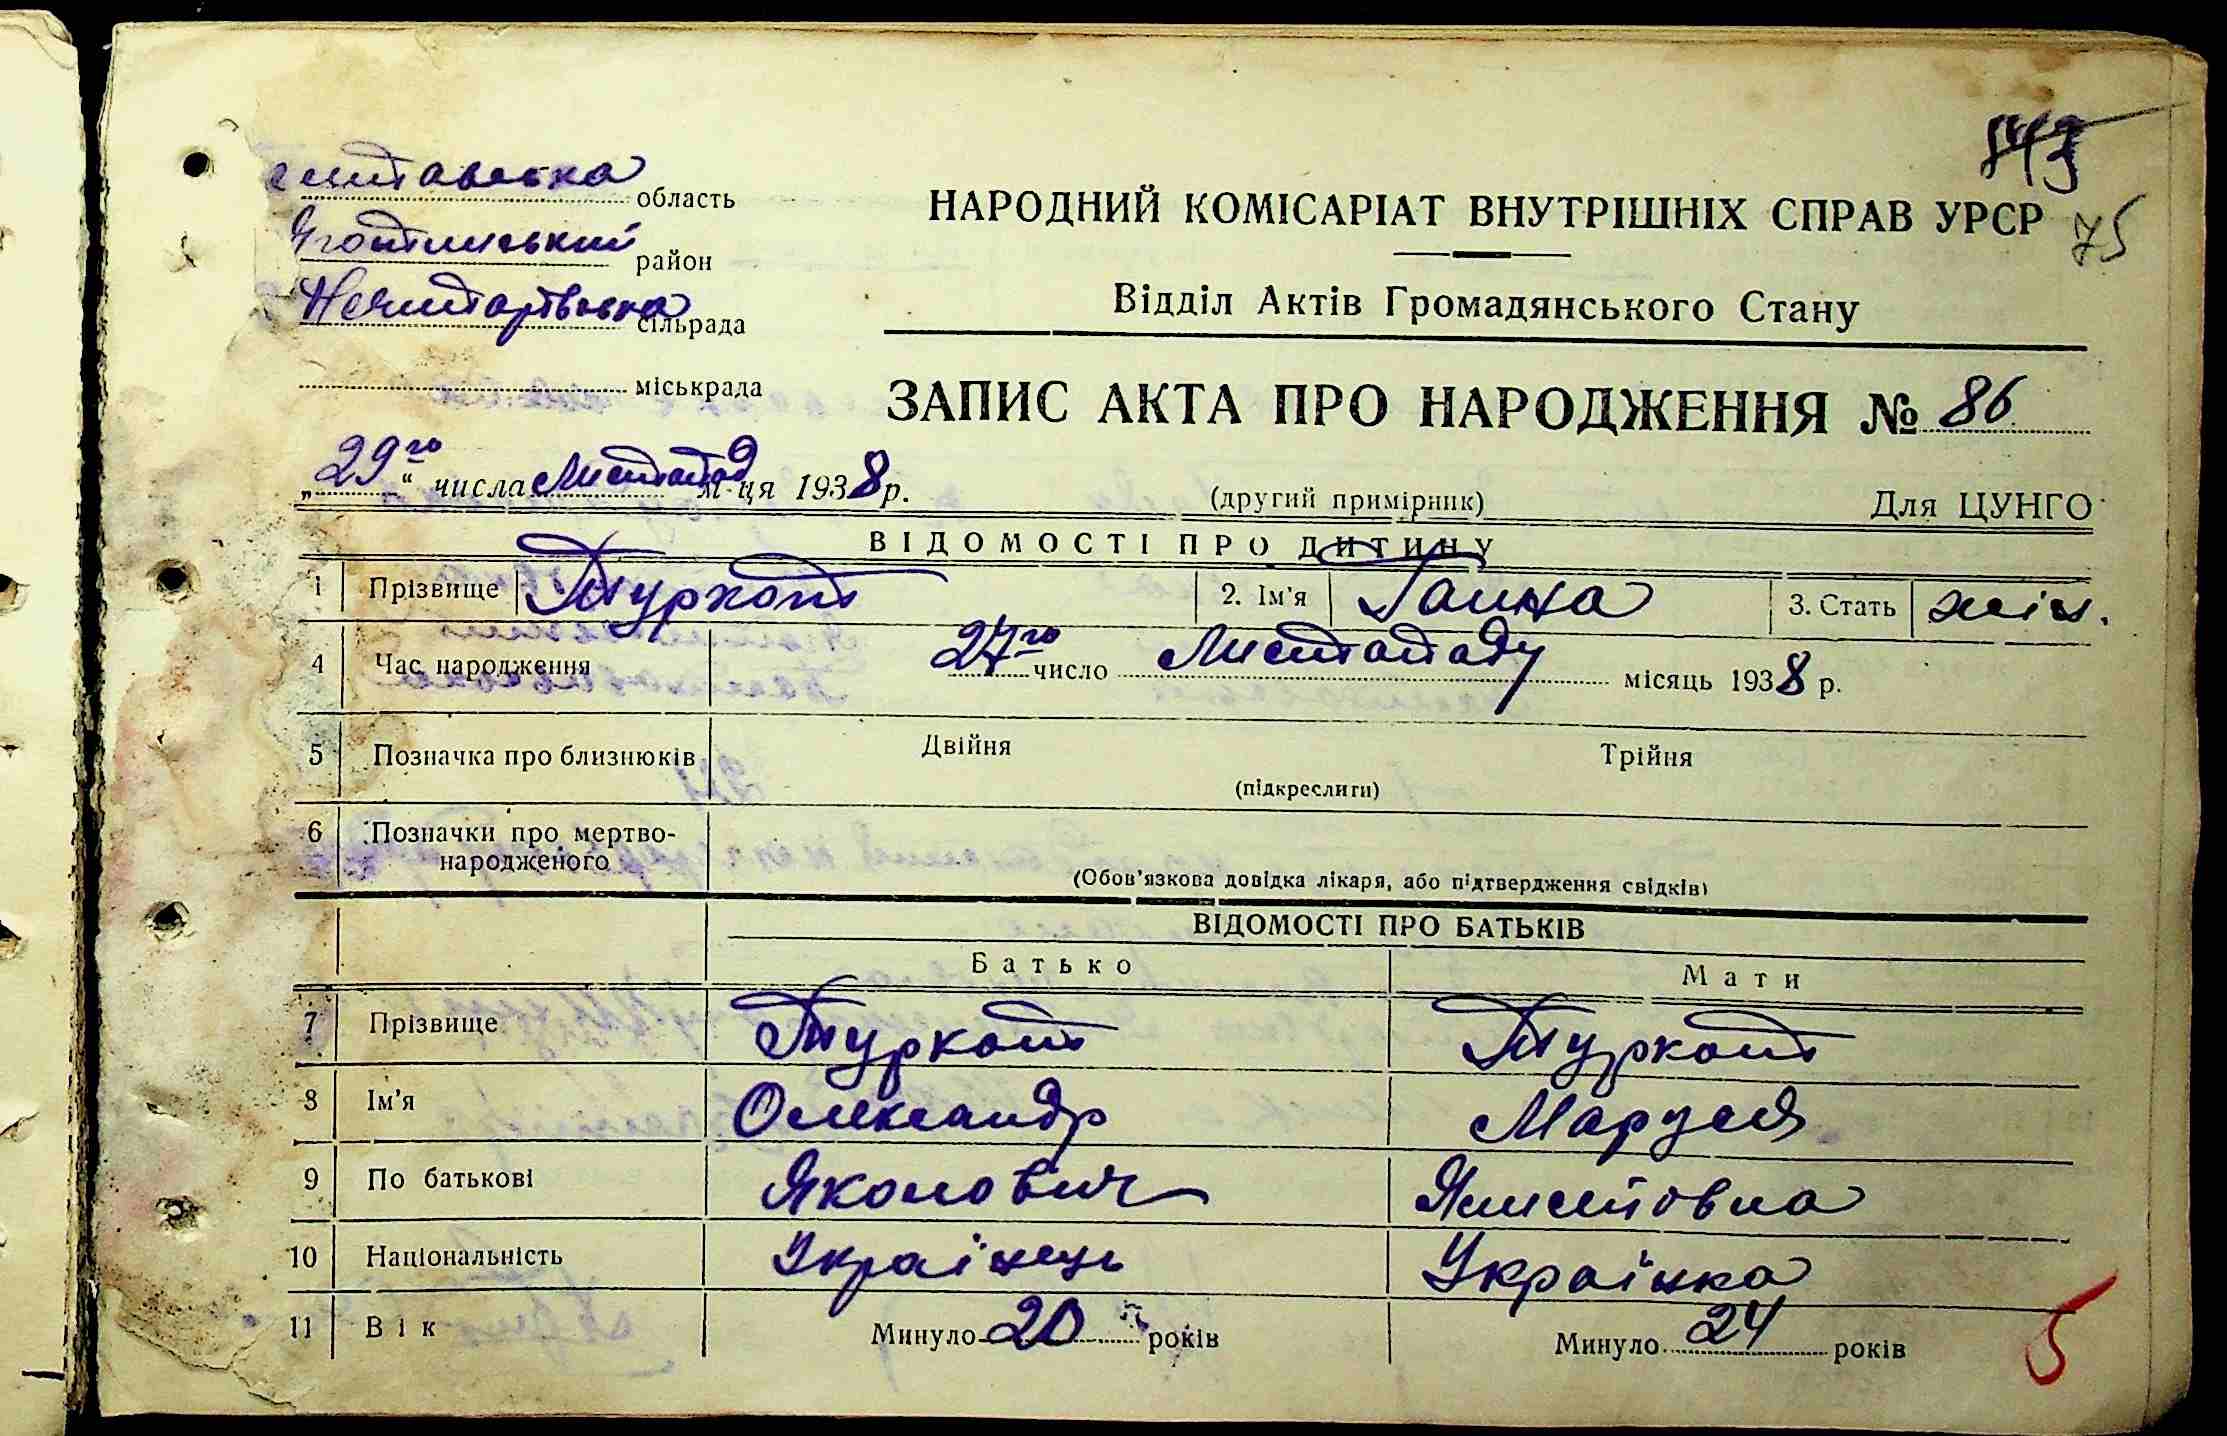 область
Яготинський район
сільрада
міськрада
143
75
НАРОДНИЙ КОМІСАРІАТ ВНУТРІШНІХ СПРАВ УРСР
Відділ Актів Громадянського Стану
ЗАПИС АКТА ПРО НАРОДЖЕННЯ № 86
„29го“ числа Листопад м-ця 1938 р.
(другий примірник)
Для ЦУНГО
ВІДОМОСТІ ПРО ДИТИНУ
1 Прізвище Туркот 2. Ім'я Ганна 3. Стать жін.
4 Час народження 27го число Листопаду місяць 1938 р.
5 Позначка про близнюків Двійня Трійня
(підкреслити)
6 Позначки про мертво-
народженого
(Обов'язкова довідка лікаря, або підтвердження свідків)
ВІДОМОСТІ ПРО БАТЬКІВ
Батько Мати
7 Прізвище Туркот Туркот
8 Ім'я Олександр Маруся
9 По батькові Якович
10 Національність Українець Українка
11 Вік Минуло 20 років Минуло 24 років
5